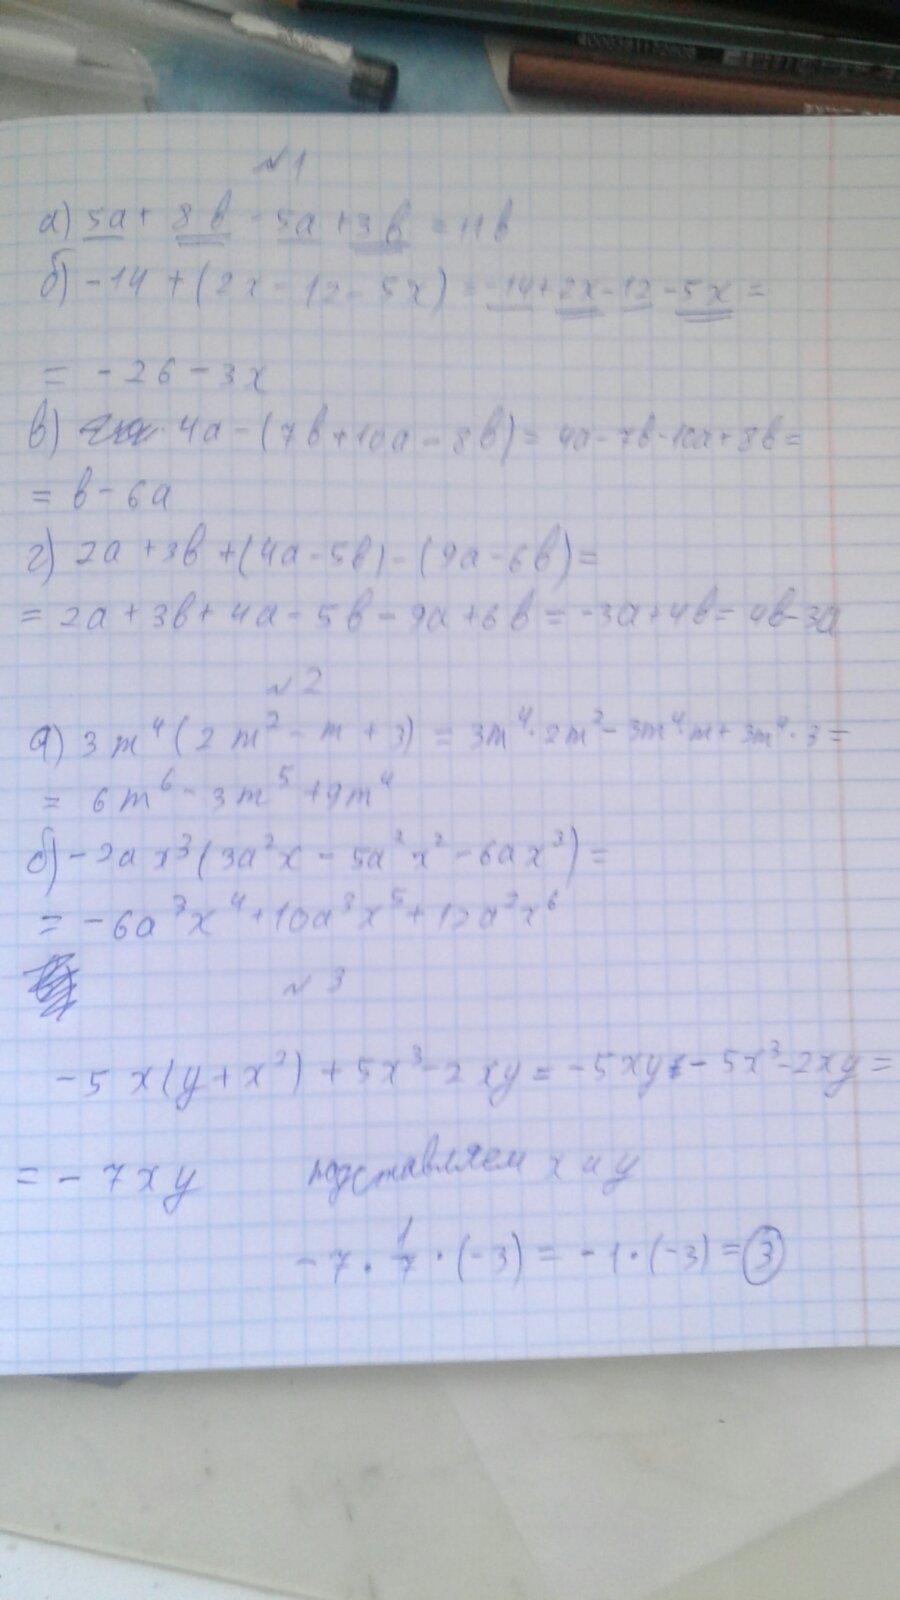 №1
а) 5a + 8b - 5a + 3b = 11b
б) -14 + (2x - 12 - 5x) = -14 + 2x - 12 - 5x =
= -26 - 3x
в) 4a - (7b + 10a - 8b) = 4a - 7b - 10a + 8b =
= b - 6a
г) 2a + 3b + (4a - 5b) - (9a - 6b) =
= 2a + 3b + 4a - 5b - 9a + 6b = -3a + 4b = 4b - 3a
№2
а) 3m⁴(2m² - m + 3) = 3m⁴ · 2m² - 3m⁴ m + 3m⁴ · 3 =
= 6m⁶ - 3m⁵ + 9m⁴
б) -2ax³(3a²x - 5a²x² - 6ax³) =
= -6a³x⁴ + 10a³x⁵ + 12a²x⁶
№3
-5x(y + x²) + 5x³ - 2xy = -5xy - 5x³ - 2xy =
= -7xy подставляем x и y
-7 · 1/7 · (-3) = -1 · (-3) = 3